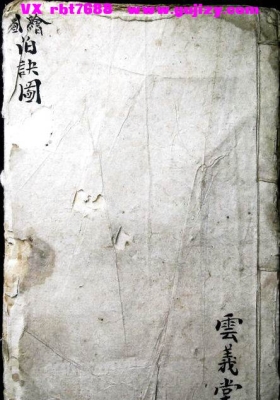 VX rbt7688 www.gujizy.com
繪
泊訣圖
雲義堂